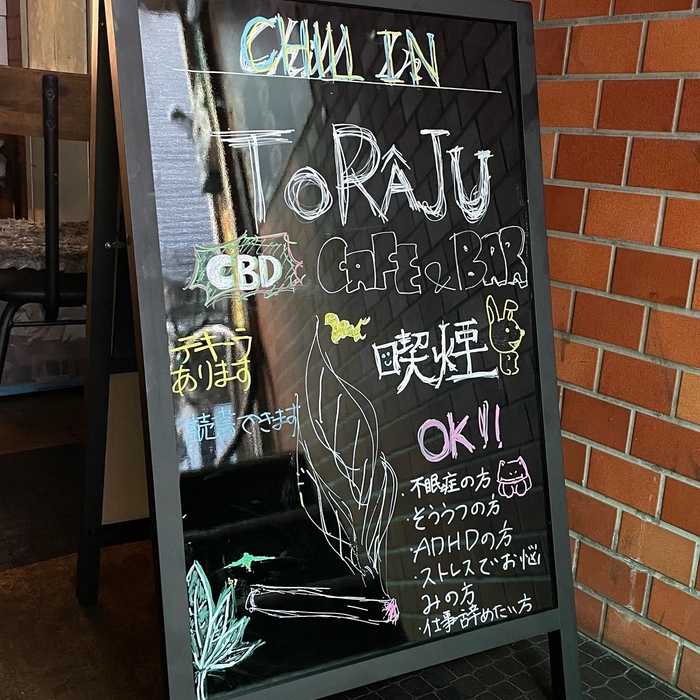 CHILL IN
ToRÂJU
CBD
CAFE & BAR
テキーラ
あります
喫煙
読書できます
OK!!
・不眠症の方
・そううつの方
・ADHDの方
・ストレスでお悩
みの方
・仕事辞めたい方